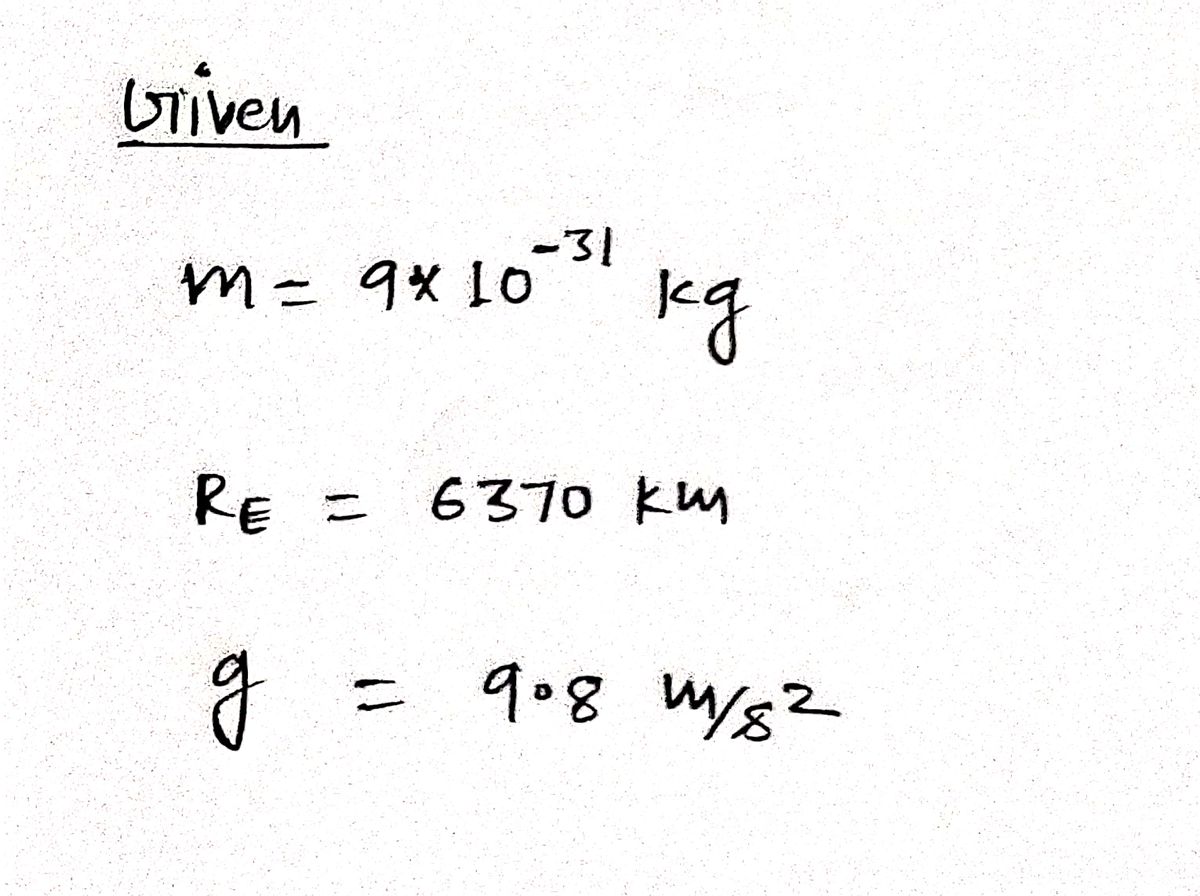 Given
m = 9 × 10⁻³¹ kg
R_E = 6370 km
g = 9.8 m/s²